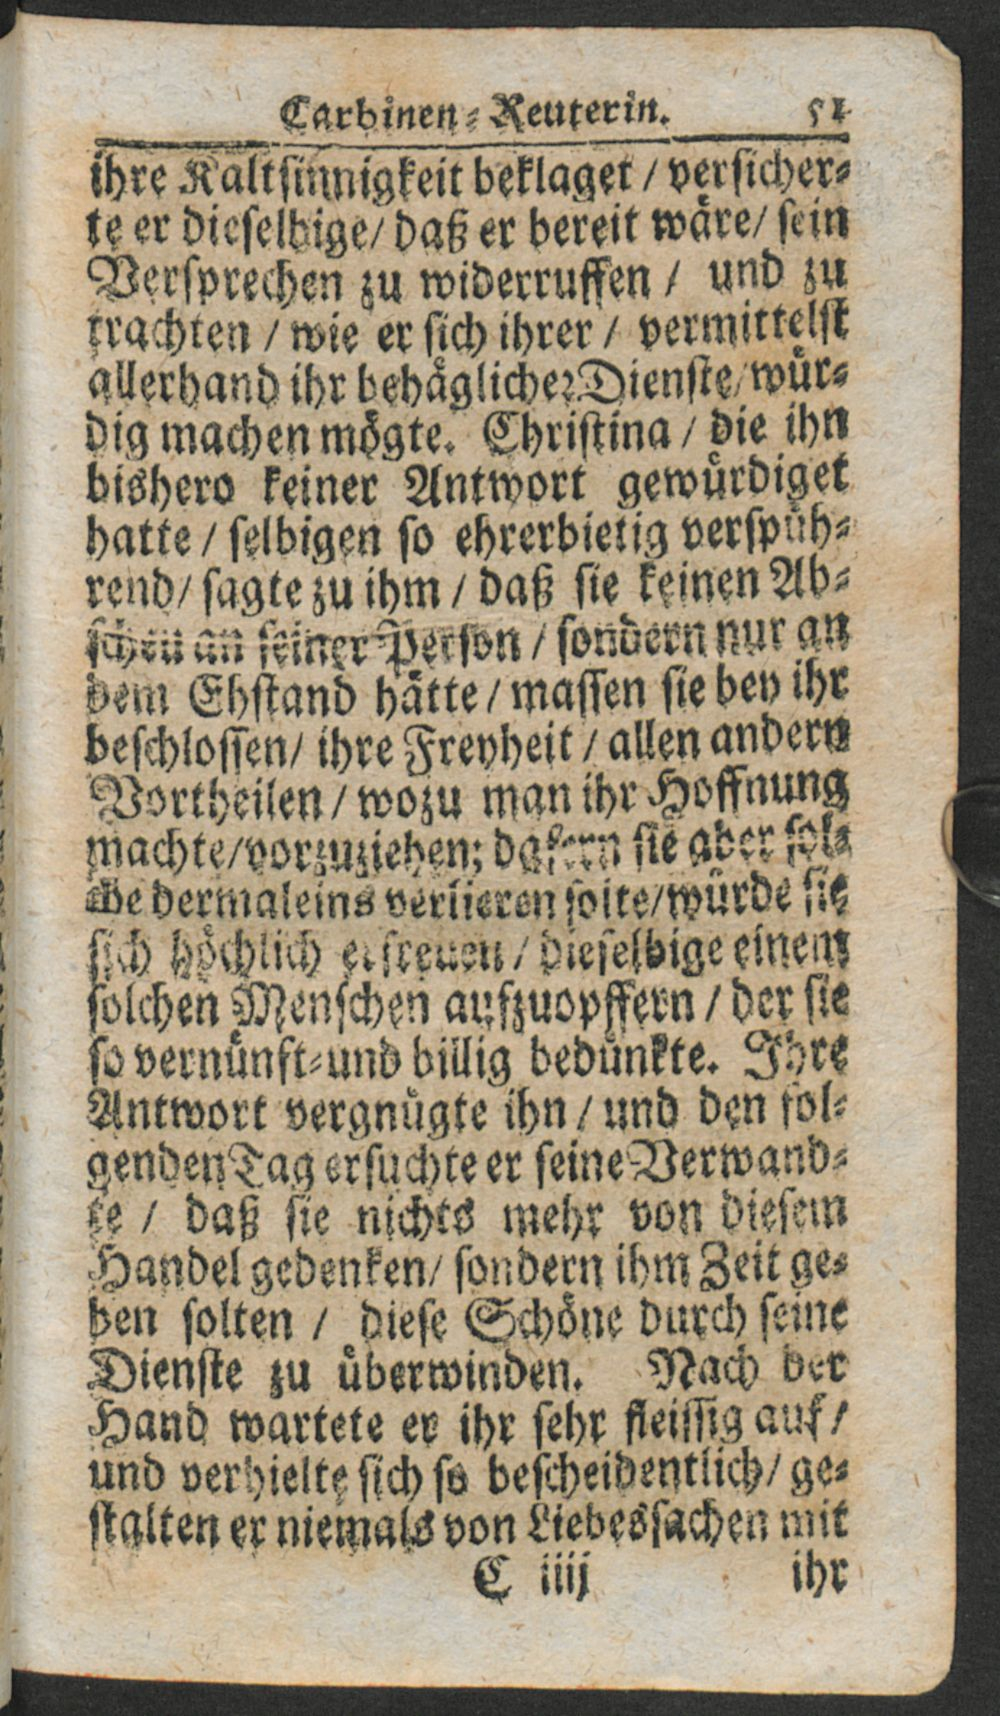 Carbinen-Reuterin. 51
ihre Kaltsinnigkeit beklaget / versicher-
te er dieselbige/ daß er bereit wäre/ sein
Versprechen zu widerruffen / und zu
trachten / wie er sich ihrer / vermittelst
allerhand ihr behäglicher Dienste/ wür-
dig machen mögte. Christina / die ihn
bishero keiner Antwort gewürdiget
hatte / selbigen so ehrerbietig verspüh-
rend/ sagte zu ihm / daß sie keinen Ab-
scheu an seiner Person / sondern nur an
dem Ehstand hätte / massen sie bey ihr
beschlossen/ ihre Freyheit / allen andern
Vortheilen / wozu man ihr Hoffnung
machte/vorzuziehen; dafern sie aber sol-
che dermaleins verlieren solte/würde sie
sich höchlich erfreuen / dieselbige einem
solchen Menschen aufzuopffern / der sie
so vernünft-und billig bedünkte. Ihre
Antwort vergnügte ihn / und den fol-
genden Tag ersuchte er seine Verwand-
te / daß sie nichts mehr von diesem
Handel gedenken/ sondern ihm Zeit ge-
ben solten / diese Schöne durch seine
Dienste zu überwinden. Nach der
Hand wartete er ihr sehr fleissig auf /
und verhielte sich so bescheidentlich/ ge-
stalten er niemals von Liebessachen mit
C iiij ihr